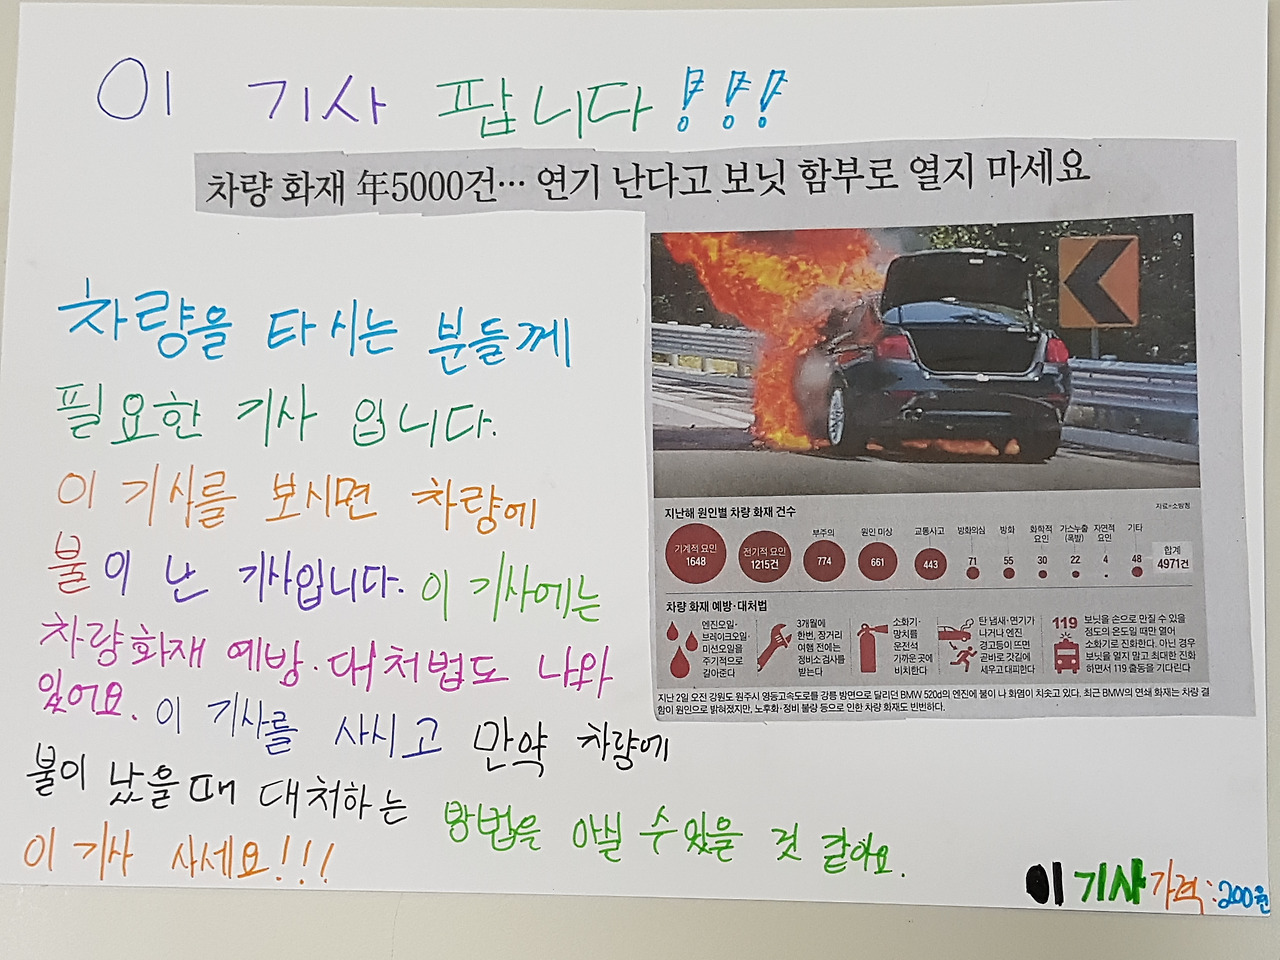 이 기사 팝니다!!!
차량 화재 年5000건… 연기 난다고 보닛 함부로 열지 마세요
차량을 타시는 분들께
필요한 기사 입니다.
이 기사를 보시면 차량에
불이 난 기사입니다. 이 기사에는
차량화재 예방·대처법도 나와
있어요. 이 기사를 사시고 만약 차량에
불이 났을때 대처하는 방법을 아실 수 있을 것 같아요.
이 기사 사세요!!!
지난해 원인별 차량 화재 건수
자료=소방청
기계적 요인
1648
전기적 요인
1215건
부주의
774
원인 미상
661
교통사고
443
방화의심
71
방화
55
화학적
요인
30
가스누출
(폭발)
22
자연적
요인
4
기타
48
합계
4971건
차량 화재 예방·대처법
엔진오일·
브레이크오일·
미션오일을
주기적으로
갈아준다
3개월에
한번, 장거리
여행 전에는
정비소 검사를
받는다
소화기·
망치를
운전석
가까운 곳에
비치한다
탄 냄새·연기가
나거나 엔진
경고등이 뜨면
곧바로 갓길에
세우고 대피한다
119
보닛을 손으로 만질 수 있을
정도의 온도일 때만 열어
소화기로 진화한다. 아닌 경우
보닛을 열지 말고 최대한 진화
하면서 119 출동을 기다린다
지난 2일 오전 강원도 원주시 영동고속도로를 강릉 방면으로 달리던 BMW 520d의 엔진에 불이 나 화염이 치솟고 있다. 최근 BMW의 연쇄 화재는 차량 결
함이 원인으로 밝혀졌지만, 노후화·정비 불량 등으로 인한 차량 화재도 빈번하다.
이 기사 가격:200원